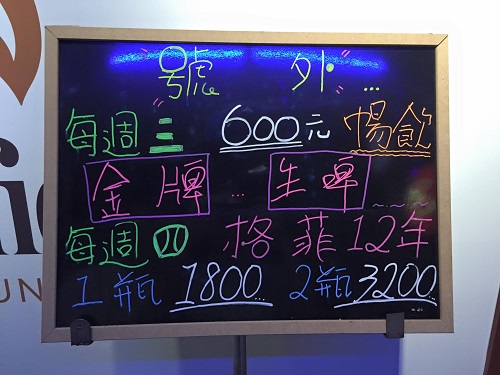 "號 外"...
每週三 600元 暢飲
金牌...生啤~~~
每週四 格菲12年
1瓶 1800... 2瓶 3200...